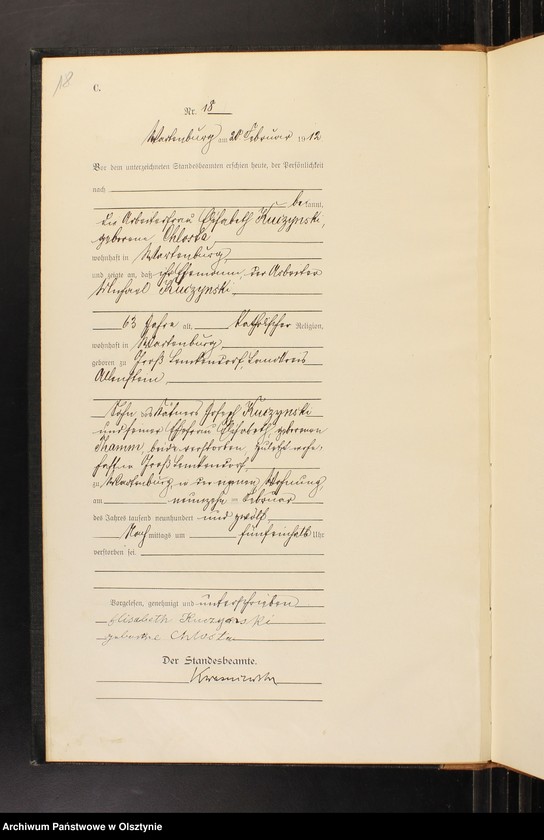 18
C.
Nr. 18
Wartenburg am 20 Februar 1912
Vor dem unterzeichneten Standesbeamten erschien heute, der Persönlichkeit
nach
bekannt,
die Arbeiterfrau Elisabeth Kuczynski,
geborene Chlosta
wohnhaft in Wartenburg,
und zeigte an, daß ihr Ehemann, der Arbeiter
Michael Kuczynski
63 Jahre alt, katholischer Religion,
wohnhaft in Wartenburg
geboren zu Groß Lemkendorf, Landkreis
Allenstein
Sohn des Kätners Joseph Kuczynski
und seiner Ehefrau Elisabeth geborenen
Thamm, beide verstorben, zuletzt wohn-
haft in Groß Lemkendorf,
zu Wartenburg in der Wohnung
am neunzehn = Februar
des Jahres tausend neunhundert und zwölf
Nachmittags um fünfeinhalb Uhr
verstorben sei.
Vorgelesen, genehmigt und unterschrieben
Elisabeth Kuczynski
geborene Chlosta
Der Standesbeamte.
Archiwum Państwowe w Olsztynie